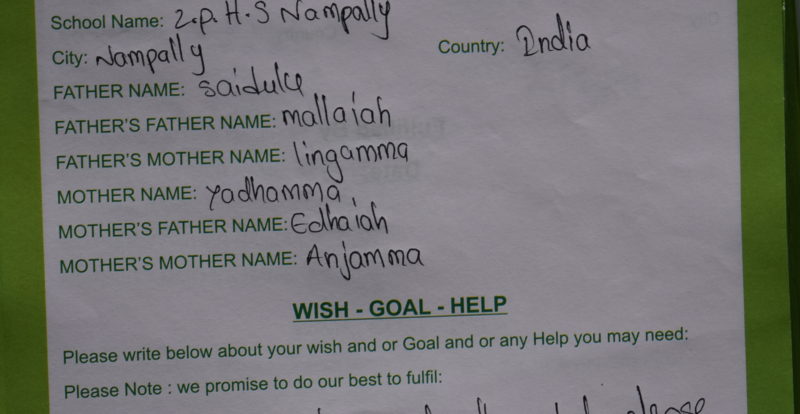 School Name: Z.P.H.S Nampally
City: Nampally Country: India
FATHER NAME: saidulu
FATHER'S FATHER NAME: mallaiah
FATHER'S MOTHER NAME: lingamma
MOTHER NAME: yadhamma
MOTHER'S FATHER NAME: Edhaiah
MOTHER'S MOTHER NAME: Anjamma
WISH - GOAL - HELP
Please write below about your wish and or Goal and or any Help you may need:
Please Note : we promise to do our best to fulfil: